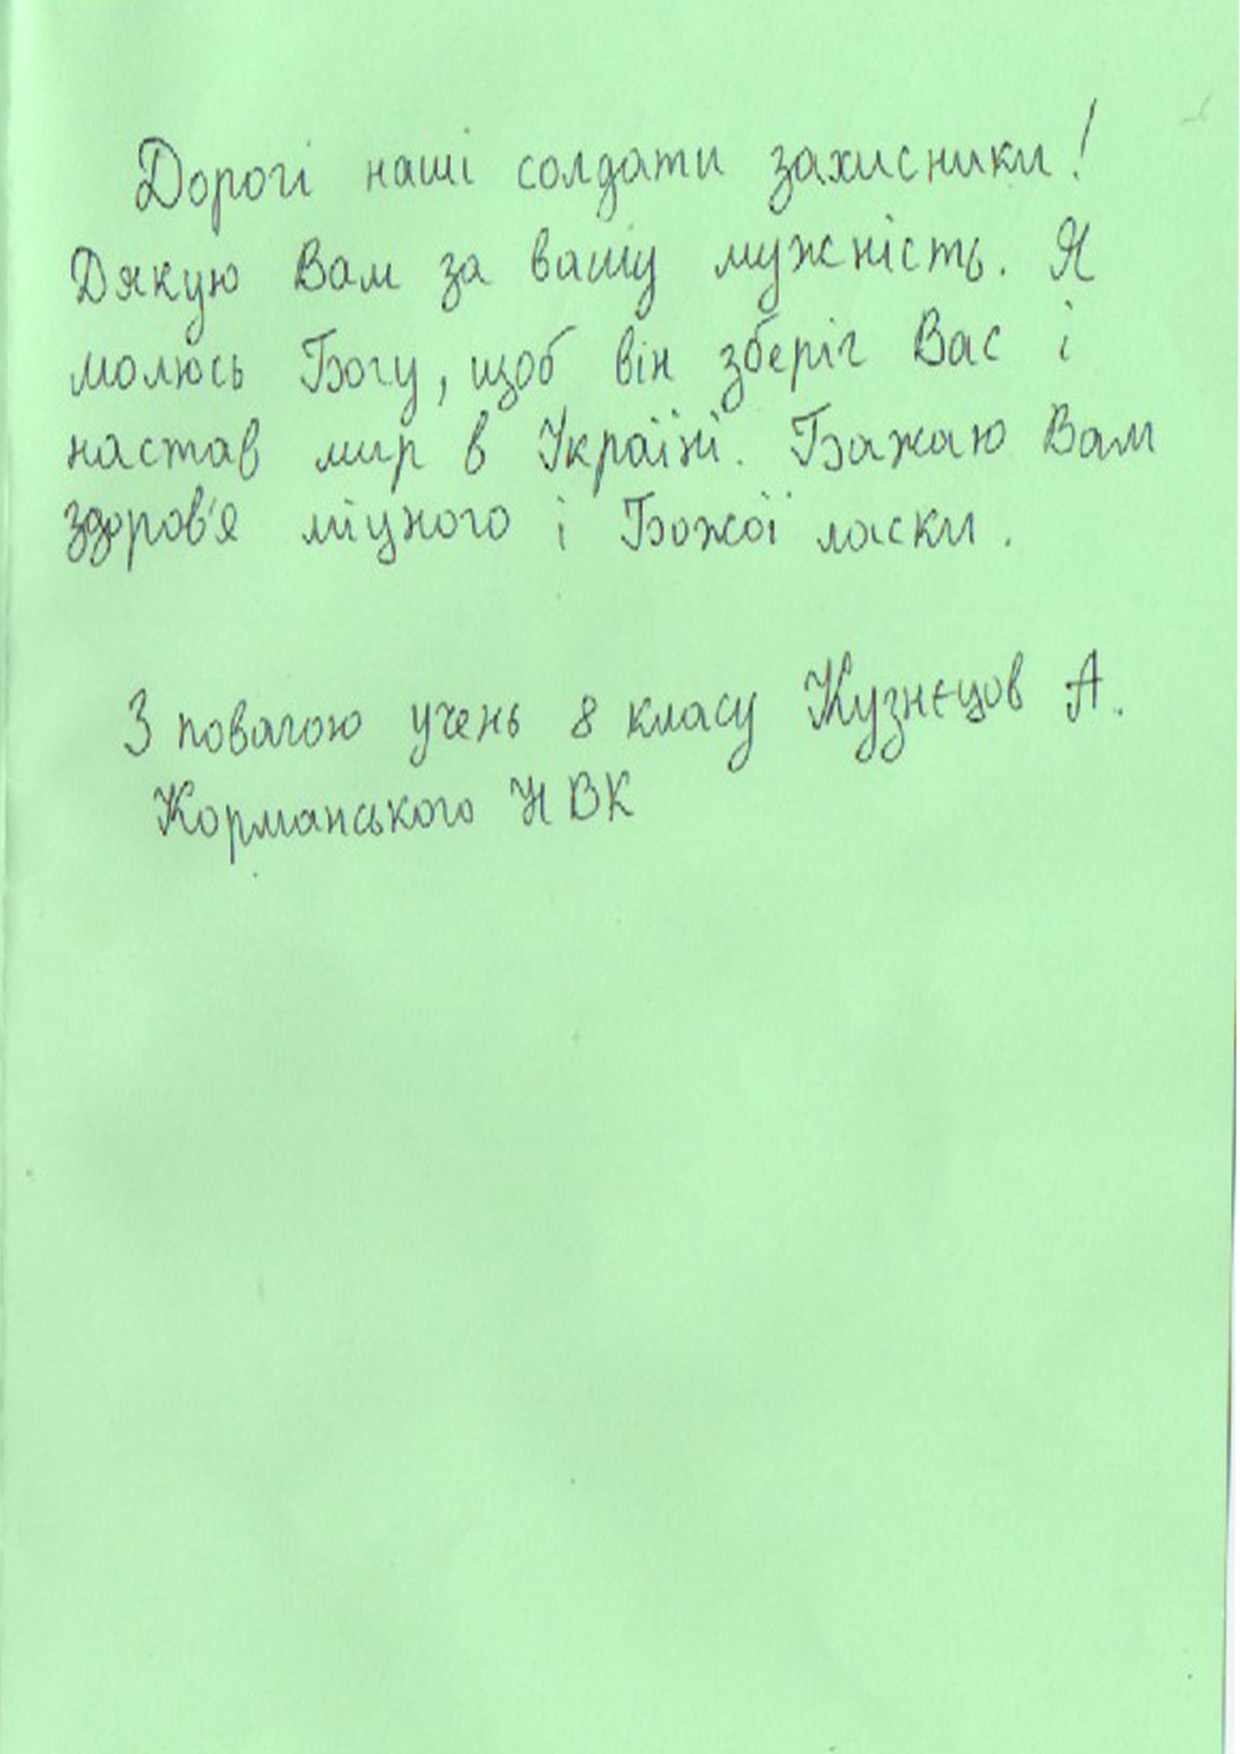 Дорогі наші солдати захисники!
Дякую Вам за вашу мужність. Я
молюсь Богу, щоб він зберіг Вас і
настав мир в Україні. Бажаю Вам
здоров'я міцного і Божої ласки.
З повагою учень 8 класу Кузнєцов А.
Корманського НВК